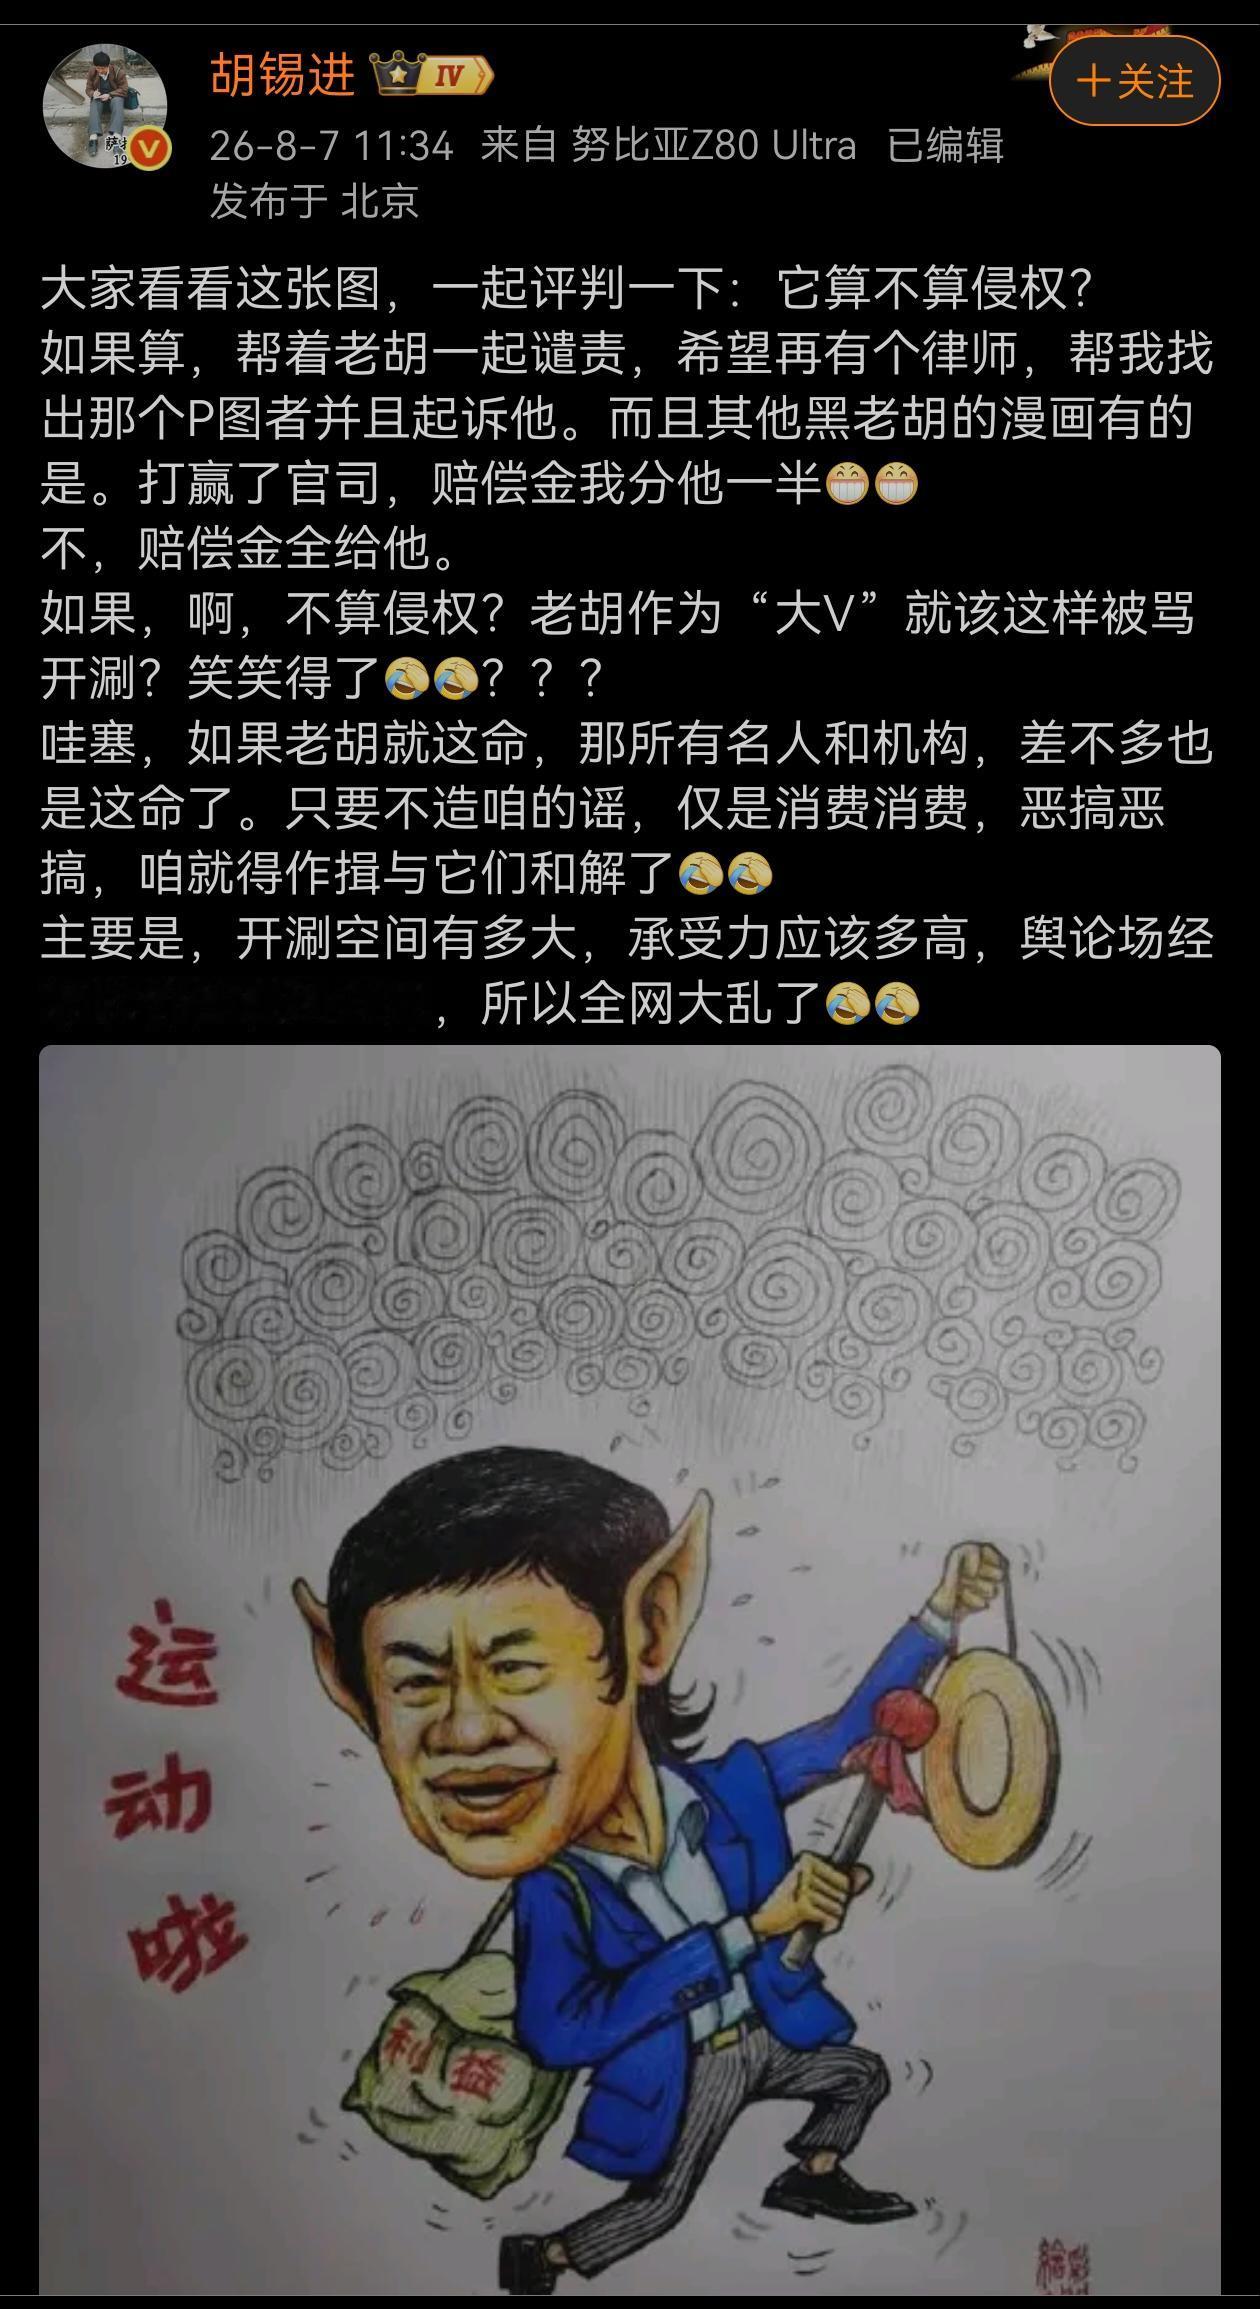 胡锡进 IV
+关注
26-8-7 11:34 来自 努比亚Z80 Ultra 已编辑
发布于 北京
大家看看这张图，一起评判一下：它算不算侵权？
如果算，帮着老胡一起谴责，希望再有个律师，帮我找
出那个P图者并且起诉他。而且其他黑老胡的漫画有的
是。打赢了官司，赔偿金我分他一半😁😁
不，赔偿金全给他。
如果，啊，不算侵权？老胡作为“大V”就该这样被骂
开涮？笑笑得了🤣🤣？？？
哇塞，如果老胡就这命，那所有名人和机构，差不多也
是这命了。只要不造咱的谣，仅是消费消费，恶搞恶
搞，咱就得作揖与它们和解了🤣🤣
主要是，开涮空间有多大，承受力应该多高，舆论场经
，所以全网大乱了🤣🤣
运动啦
利益